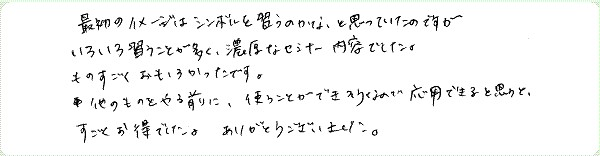 最初のイメージはシンボルを習うのかな、と思っていたのですが
いろいろ習うことが多く、濃厚なセミナー内容でした。
ものすごくおもしろかったです。
他のものをやる前に、使うことができそうなので応用できると思うと、
すごくお得でした。 ありがとうございました。